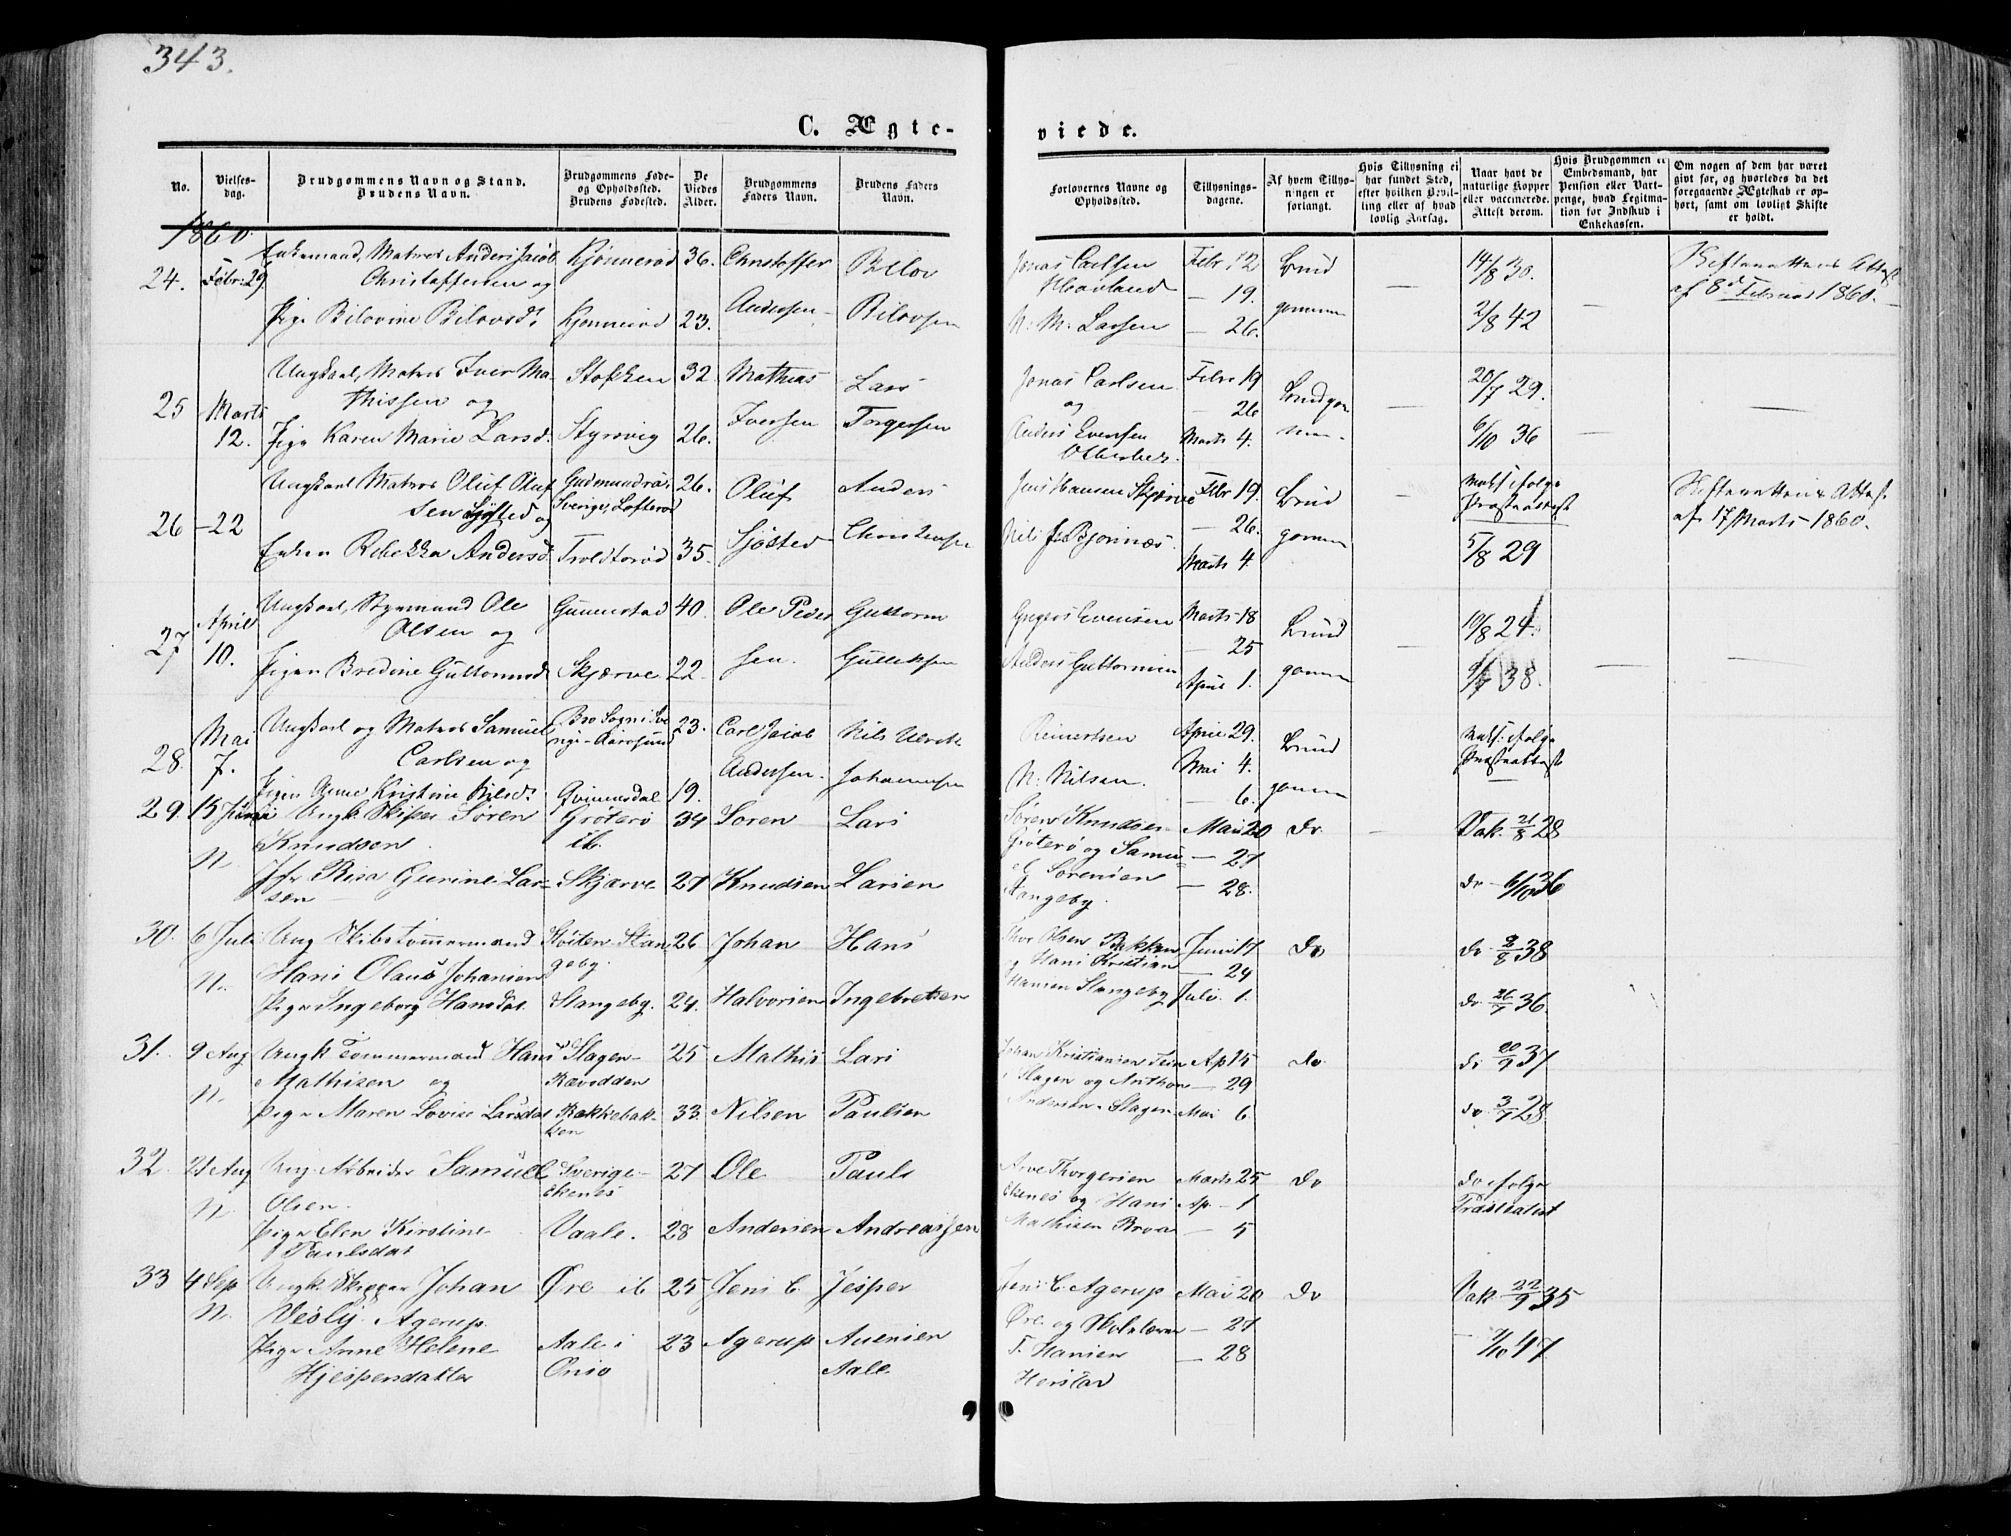 343.
C. Ægte-
viede.
No.
Vielses-
dag.
Brudgommens Navn og Stand.
Brudens Navn.
Brudgommens Føde-
og Opholdssted.
Brudens Fødested.
De
Viedes
Alder.
Brudgommens
Faders Navn.
Brudens Faders
Navn.
Forlovernes Navne og
Opholdssted.
Tillysnings-
dagene.
Af hvem Tillys-
ningen er
forlangt.
Hvis Tillysning ei
har fundet Sted,
efter hvilken Bevil-
ling eller af hvad
lovlig Aarsag.
Naar havt de
naturlige Kopper
eller vaccinerede.
Attest derom.
Hvis Brudgommen er
Embedsmand, har
Pension eller Vart-
penge, hvad Legitima-
tion for Indskud i
Enkekassen.
Om nogen af dem har været
givt før, og hvorledes da det
foregaaende Ægteskab er op-
hørt, samt om lovligt Skifte
er holdt.
1860.
24. Febr. 29. Enkemand, Matros Anders Jacob Kjønnerød 36. Christoffer Bilov
Christoffersen og
Pige Bilovine Bilovsd. Kjønnerød 23. Andersen Bilovsen
Jonas Carlsen Febr. 12 Brud 14/8 30. Skifterettens Attest
Havland — 19. af 8d Februar 1860.
N. M. Larsen — 26. gommen 2/8 42
25 Marts 12. Ungkarl, Matros Iver Ma- Stokken 32 Mathias Lars
thissen og
Pige Karen Marie Larsd. Styrsvig 26. Iversen Torgersen
Jonas Carlsen Febr 19 Brudgom 20/7 29.
og — 26
Anders Evensen Marts 4. men 6/10 36
26 - 22 Ungkarl Matros Oluf Oluf 26. Oluf Anders
sen Sjøsted og Sverige,
Enken Rebekka Andersd. Troldforød 35. Sjøsted Christensen
Jens Hansen Skjærve Febr 19. Brud Vaks. ifølge Skifterettens Attest
— 26. Præsteattest af 17 Marts 1860.
Nils Bjønnæs Marts 4. gommen 5/8 29
27 April 10. Ungkarl, Styrmand Ole Gunnestad 40. Ole Peder Guttorm
Olsen og
Pigen Bredine Guttormsd. Skjærve 22. sen. Gulleksen
Gregers Evensen Marts 18 Brud 10/8 24.
— 25
Anders Guttormsen April 1. gommen 38.
28. Mai 7. Ungkarl og Matros Samuel Bro Sogn i Sve 23. Carl Jacob Nils Ulrik
Carlsen og rige
Pigen Anne Kristine Nilsd. 19. Andersen. Johannesen
Reinertsen April 29. Brud Vaks. ifølge
Mai 4. Præsteattest
N. Nilsen. — 6. gommen
29. 15 Juni Ungk. Skipper Søren Grøterø 34 Søren Lars
Knudsen. ib.
N. Jfr Risa Gurine Lar- Skjærve 27 Knudsen Larsen
sen
Søren Knudsen Mai 20 Do Vak. 21/8 28
Grøterø og Samu- — 27
el Sørensen — 28. Do 6/10 36
Stangeby.
30. 6 Juli Ung Skibstømmermand Stan 26 Johan Hans
N. Hans Olaus Johansen geby.
Pige Ingeborg Hansdat. Stangeby. 24. Halvorsen Ingebretsen
Thor Olsen Bakken Juni 17 Do Do 2/8 38
og Hans Kristian — 24
Hansen Stangeby Juli 1. Do 26/7 36.
31. 9 Aug Ungk Tømmermand Hans Slagen- 25 Mathis Lars
Mathisen og Rævodden
N. Pige Maren Lovise Larsdat Bakkebak- 33. Nilsen Paulsen
ken
Johan Kristiansen Ap 15 Do Do 20/9 37
i Slagen og Anthon — 29
Andersen Slagen Mai 6 Do 3/7 28
32. 21 Aug Ung. Arbeider Samuel Sverige- 27 Ole Pauls
Olsen Ekenes
N. Pige Elen Kirstine Vaale. 28 Andersen Andreassen
Paulsdat
Arve Thorgersen Marts 25 Do Do ifølge
Ekenes og Hans Ap. 1 Præsteattest
Mathisen Broa — 5
33 4 Sep Ungk. Skipper Johan Øre ib 25 Jens C. Jesper
N. Vesly Agerup
Pige Anne Helene Aale i 23 Agerup Auensen
Hjespersdatter Onsø Aale
Jens C. Agerup Mai 20 Do Vak 22/9 35
Øre og Skolelærer — 27
T. Hansen — 28 7/10 47
Herstad